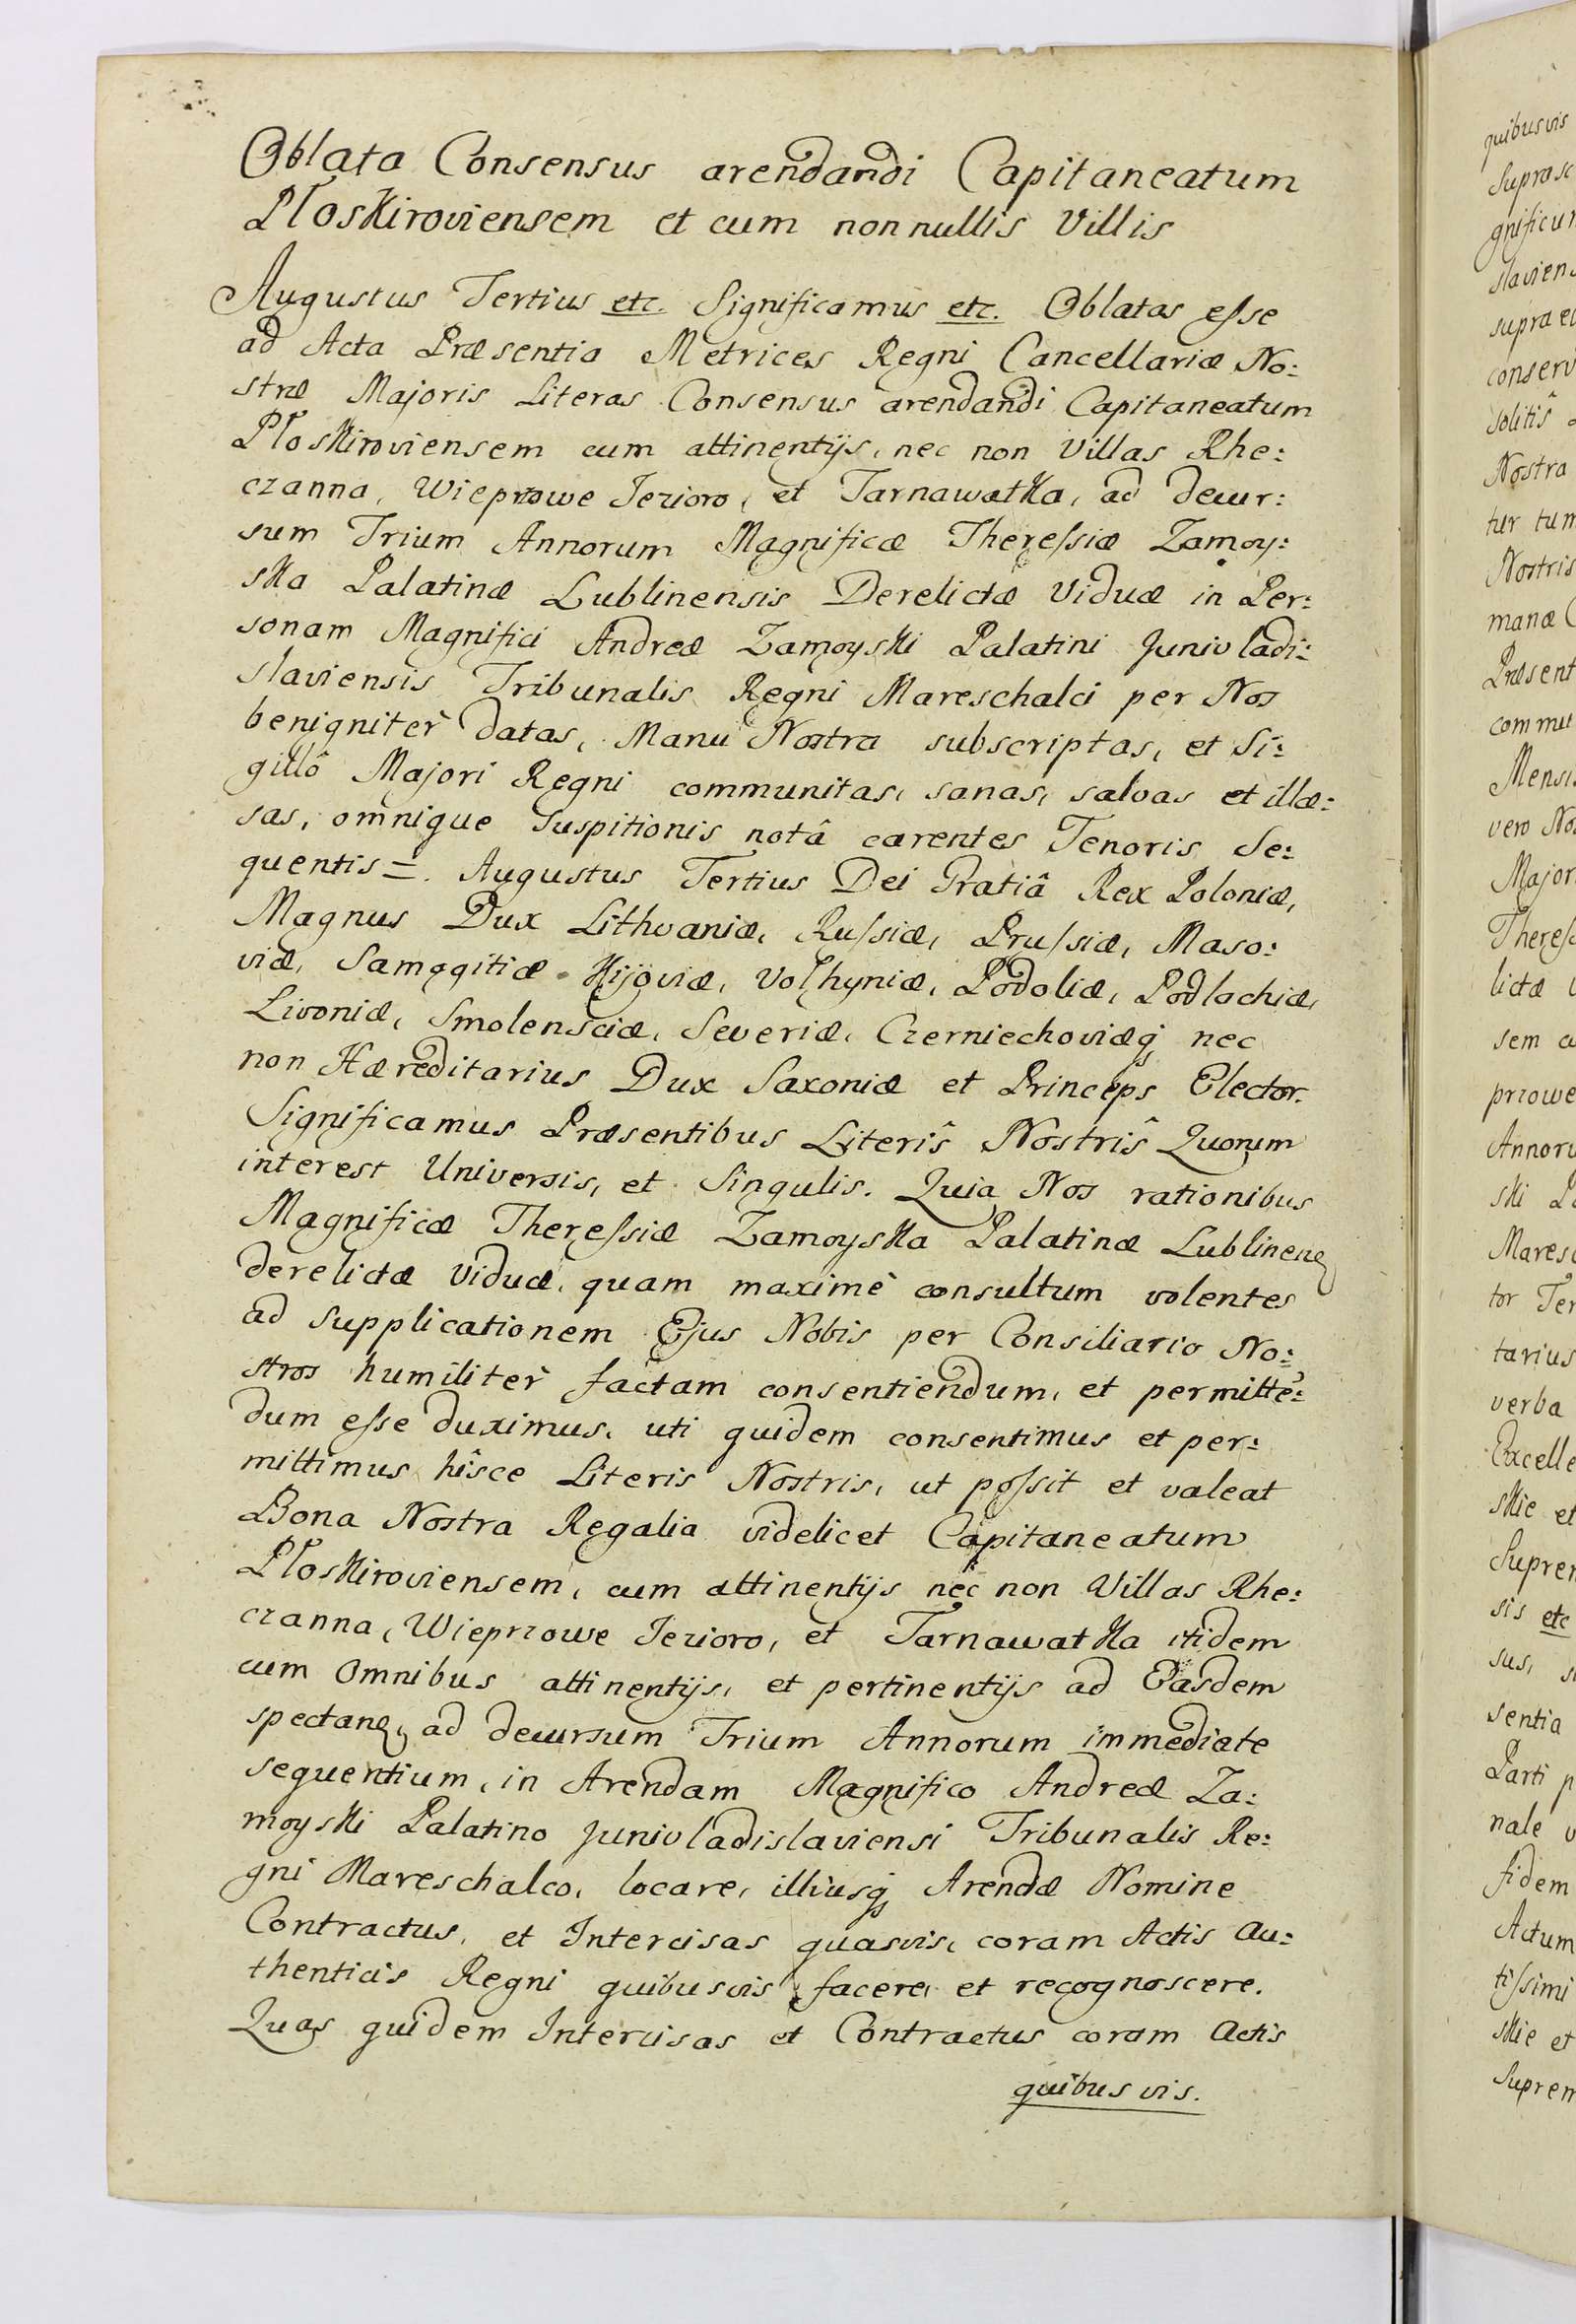 Oblata Consensus arendandi Capitaneatum
Ploskiroviensem et cum nonnullis Villis
Augustus Tertius etc. Significamus etc. Oblatas eſse
ad Acta Præsentia Metrices Regni Cancellariæ No:
stræ Majoris Literas Consensus arendandi Capitaneatum
Ploskiroviensem cum attinentijs, nec non Villas Rhe:
czanna, Wieprzowe Jezioro, et Tarnawatka, ad decur:
sum Trium Annorum Magnificæ Thereſsiæ Zamoy:
ska Palatinæ Lublinensis Derelictæ Viduæ in Per:
sonam Magnifici Andreæ Zamoyski Palatini Junivladi:
slaviensis Tribunalis Regni Mareschalci per Nos
benigniter datas, Manu Nostra subscriptas, et Si:
gillô Majori Regni communitas, sanas, salvas et illæ:
sas, omnique Suspitionis notâ carentes Tenoris Se:
quentis =. Augustus Tertius Dei Gratiâ Rex Poloniæ,
Magnus Dux Lithvaniæ, Ruſsiæ, Pruſsiæ, Maso:
viæ, Samogitiæ Kijoviæ, Volhyniæ, Podoliæ, Podlachiæ,
Livoniæ, Smolensciæ, Severiæ, Czerniechoviæq, nec
non Hæreditarius Dux Saxoniæ et Princeps Elector.
Significamus Præsentibus Literîs Nostrîs Quorum
interest Universis, et Singulis. Quia Nos rationibus
Magnificæ Thereſsiæ Zamoyska Palatinæ Lublinen
derelictæ Viduæ, quam maximè consultum volentes
ad supplicationem Ejus Nobis per Consiliario No:
stros humiliter factam consentiendum, et permittē:
dum eſse duximus, uti quidem consentimus et per:
mittimus hîsce Literis Nostris, ut poſsit et valeat
Bona Nostra Regalia videlicet Capitaneatum
Ploskiroviensem, cum attinentijs nec non Villas Rhe:
czanna, Wieprzowe Jezioro, et Tarnawatka itidem
cum Omnibus attinentijs, et pertinentijs ad Easdem
spectan, ad decursum Trium Annorum immediate
sequentium, in Arendam Magnifico Andreæ Za:
moyski Palatino Junivladislaviensi Tribunalis Re:
gni Mareschalco, locare, illiusq, Arendæ Nomine
Contractus, et Intercisas quasvis, coram Actis Au:
thenticis Regni quibusvis facere, et recognoscere.
Quas quidem Intercisas et Contractus coram Actis
quibus vis.
quibusvis
Suprasc
gnificum
slaviens
supra
conserv
solitîs
Nostra
tur tum
Nostris
manæ
Præsent
commu
Mensis
vero No
Major
Thereſs
lictæ
sem cu
przowe
Annoru
ski Pa
Maresc
tor Ter
tarius
verba
Excelle
skie et
Suprem
sis etc
sus, s
sentia
Parti p
nale v
fidem
Actum
tiſsimi
skie et
Suprem